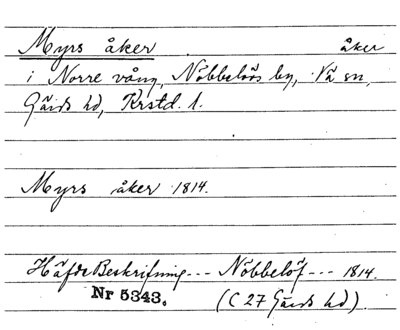 Myrs åker . åker
i Norre vång, Nöbbelövs by, Vä sn,
Gärds hd, Krstd. l.
Myrs åker 1814.
Häfde Beskrifning --- Nöbbelöf --- 1814.
Nr 5343. (C 27 Gärds hd).